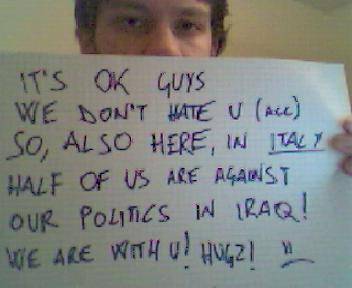 IT'S OK GUYS
WE DON'T HATE U (ALL)
SO, ALSO HERE, IN ITALY
HALF OF US ARE AGAINST
OUR POLITICS IN IRAQ!
WE ARE WITH U! HUGZ!